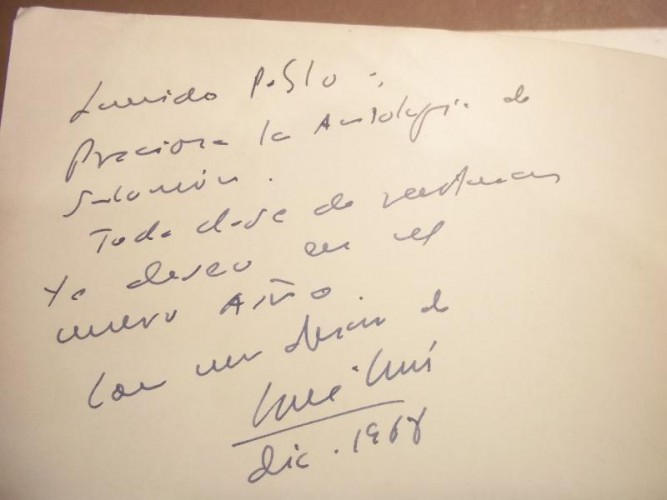 Querido Pablo:
Preciosa la Antología de
Salomón.
Toda clase de venturas
te deseo en el
nuevo Año.
Con un abrazo de
José Luis
dic. 1968